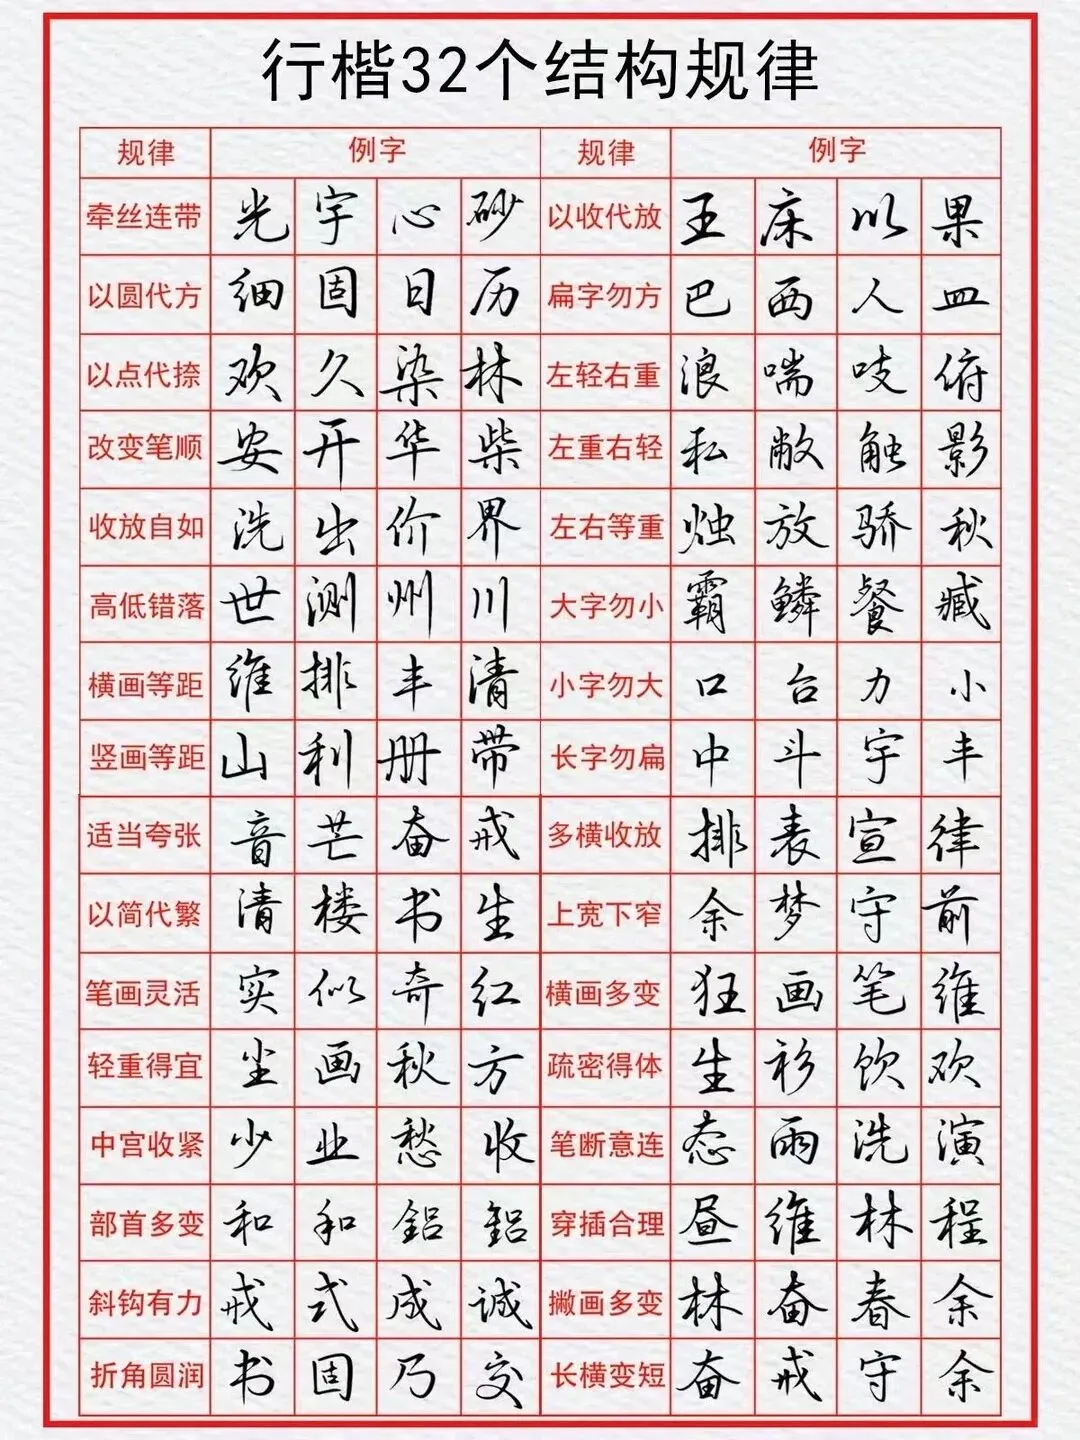 行楷32个结构规律
规律 例字 规律 例字
牵丝连带 光 宇 心 砂 以收代放 王 床 以 果
以圆代方 细 固 日 历 扁字勿方 巴 西 人 皿
以点代捺 欢 久 染 林 左轻右重 浪 喘 吱 俯
改变笔顺 安 开 华 柴 左重右轻 私 敝 触 影
收放自如 洗 出 价 界 左右等重 烛 放 骄 秋
高低错落 世 测 州 川 大字勿小 霸 鳞 餐 臧
横画等距 维 排 丰 清 小字勿大 口 台 力 小
竖画等距 山 利 册 带 长字勿扁 中 斗 宇 丰
适当夸张 音 芒 奋 戒 多横收放 排 表 宣 律
以简代繁 清 楼 书 生 上宽下窄 余 梦 守 前
笔画灵活 实 似 奇 红 横画多变 狂 画 笔 维
轻重得宜 尘 画 秋 方 疏密得体 生 衫 饮 欢
中宫收紧 少 业 愁 收 笔断意连 态 雨 洗 演
部首多变 和 和 鋁 鋁 穿插合理 昼 维 林 程
斜钩有力 戒 式 成 诚 撇画多变 林 奋 春 余
折角圆润 书 固 乃 交 长横变短 奋 戒 守 余